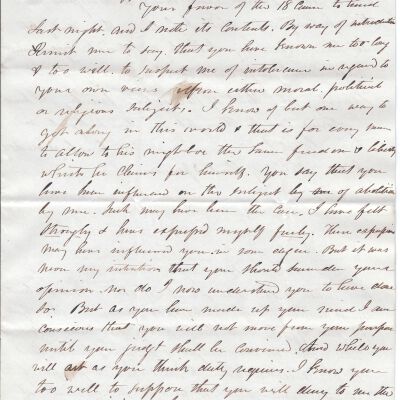 Your favor of the 18 came to hand
last night, and I note its contents. By way of introduction
Permit me to say, that you have known me too long
& too well, to suspect me of intolerance in regard to
your own views upon either moral, political
or religious subjects. I know of but one way to
get along in this world & that is for every man
to allow to his neighbor the same freedom & liberty
which he claims for himself. You say that you
have been influenced on the subject by of abolition
by me. Such may have been the case. I have felt
strongly & have expressed myself freely. These expressions
may have influenced you in some degree. But it was
never my intention that you should surrender your
opinion, nor do I now understand you to have done
so. But as you have made up your mind I am
conscious that you will not move from your purpose
until your judgt shall be convinced, and while you
will act as you think duty requires. I know you
too well to suppose that you will deny to me the